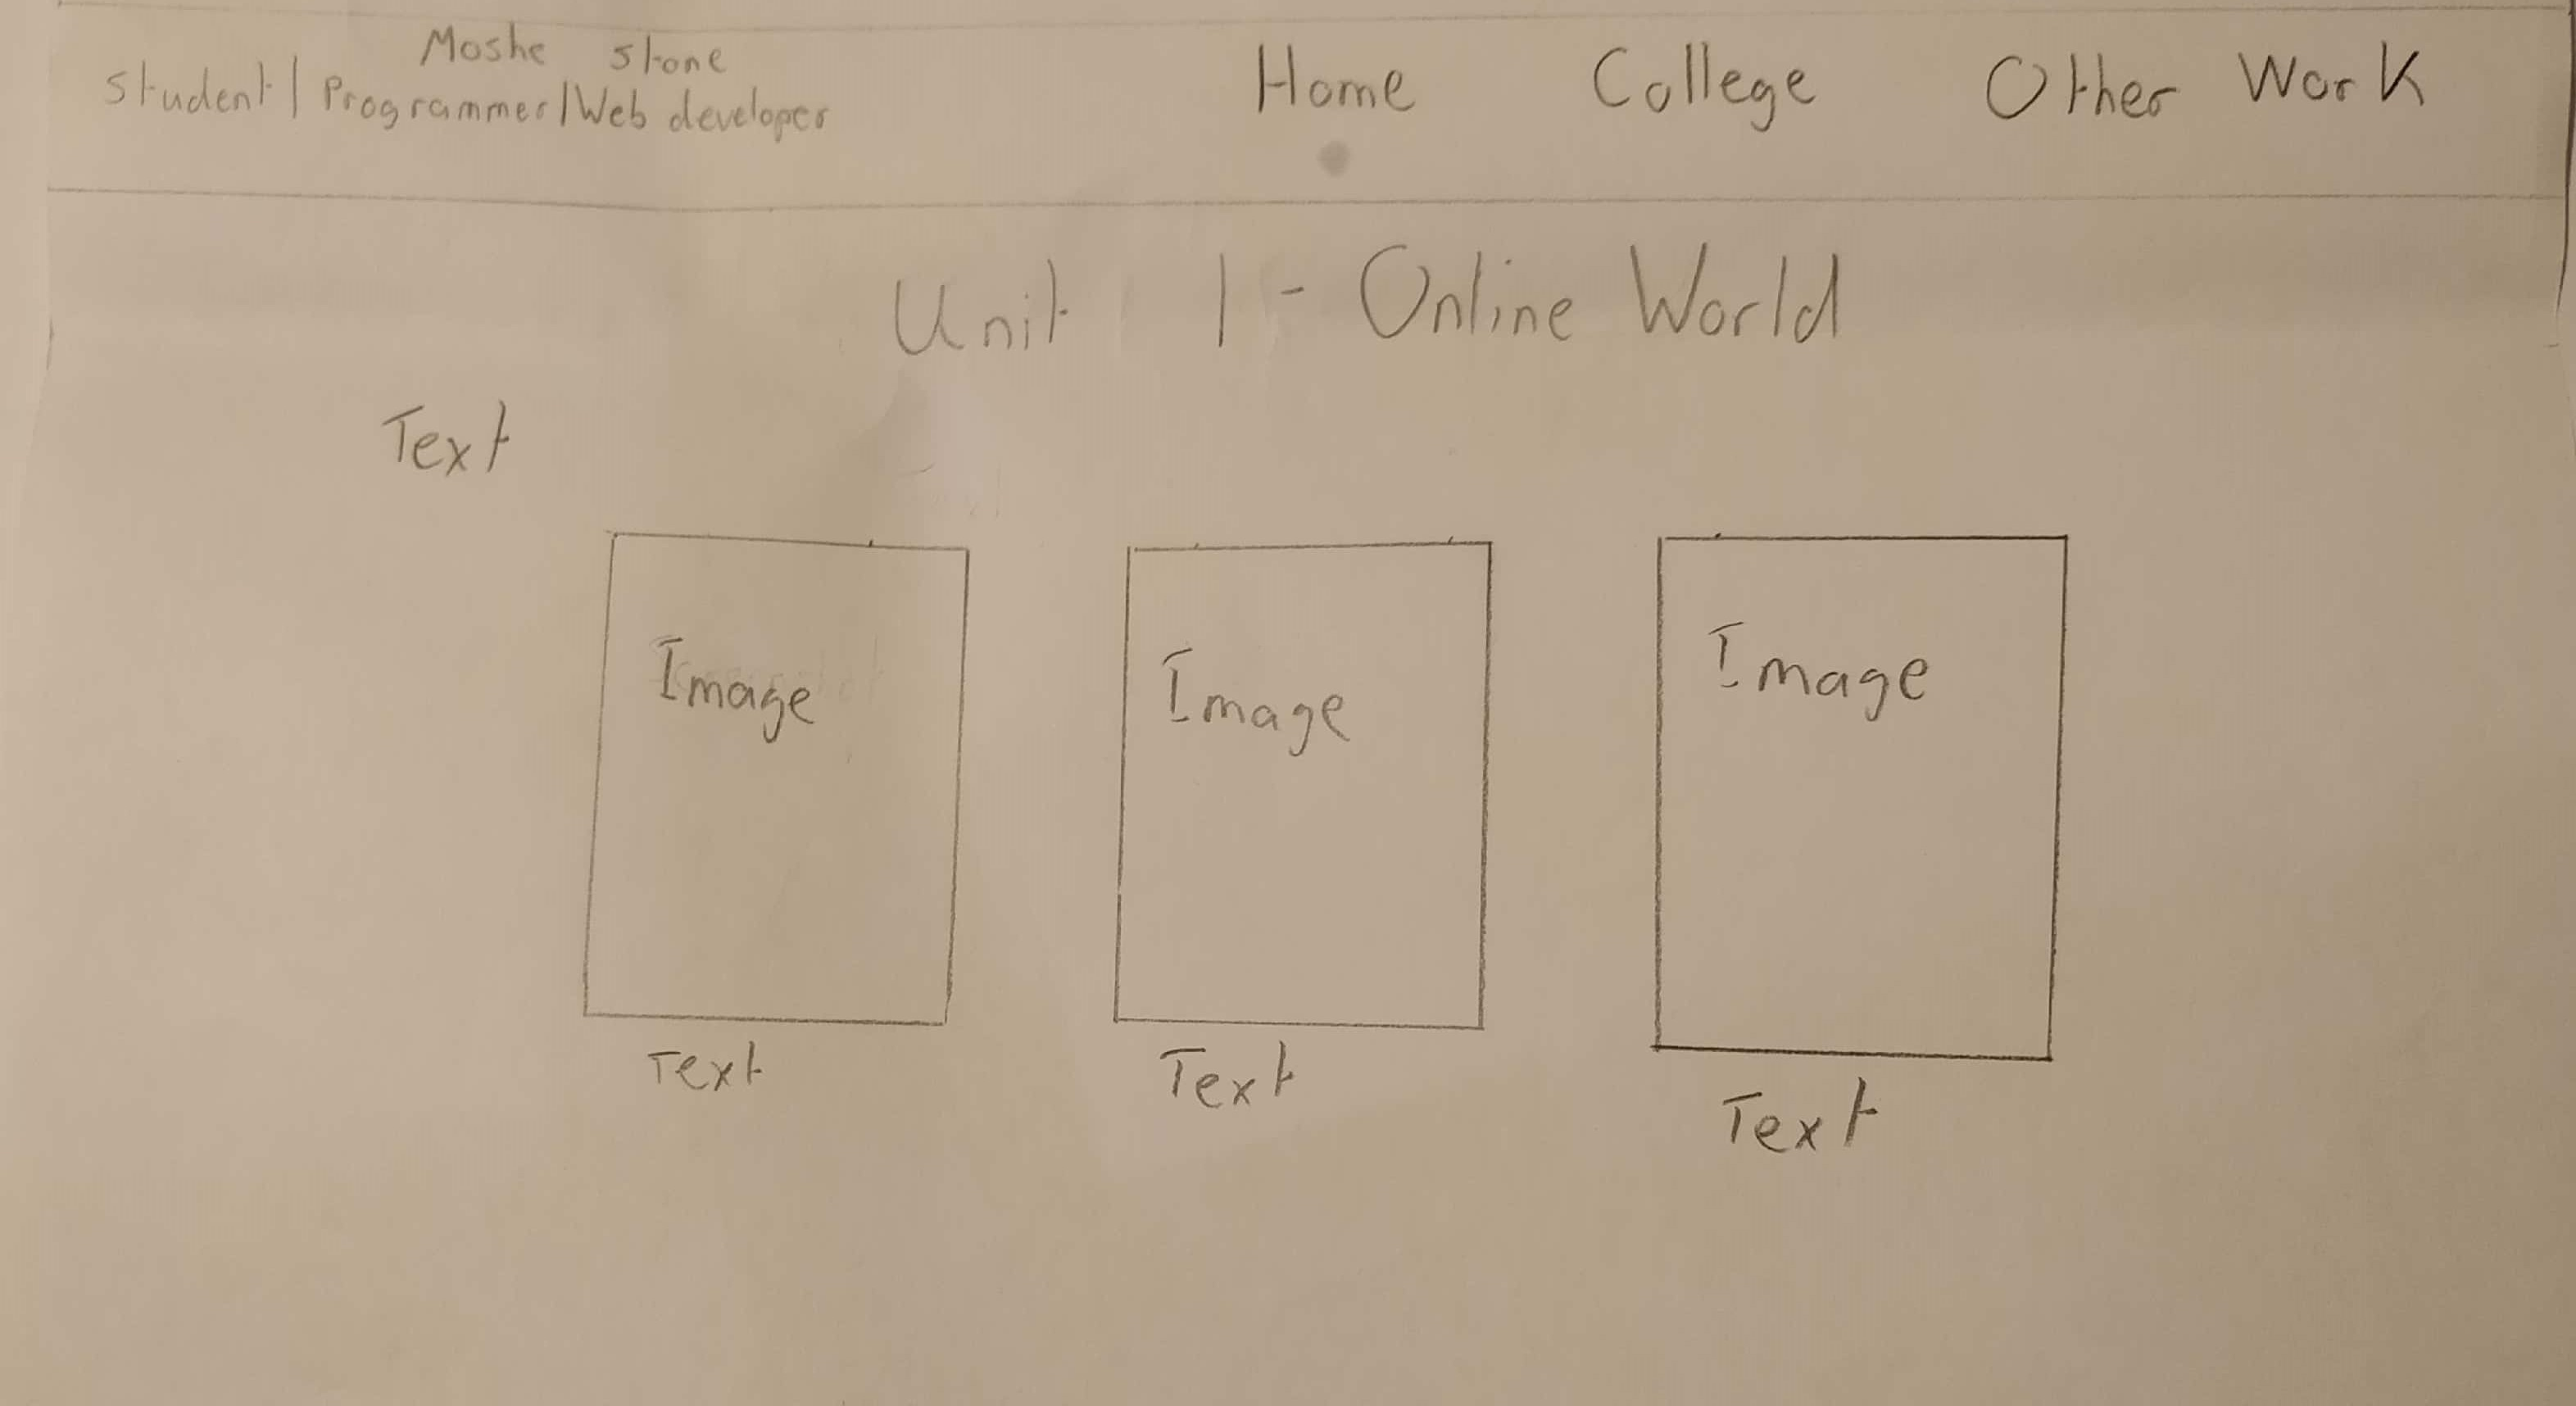 Moshe Stone
Student | Programmer | Web developer
Home College Other Work
Unit 1 - Online World
Text
Image Image Image
Text Text Text